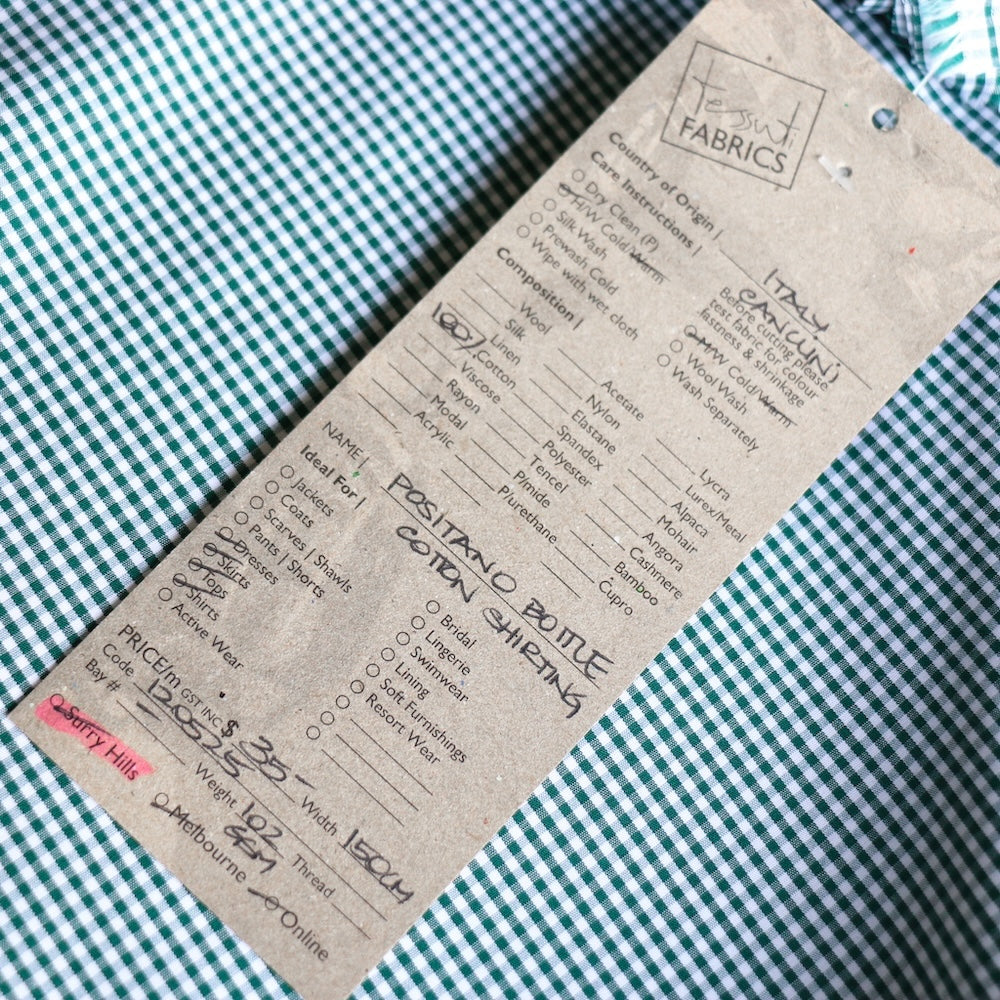 Tessuti
FABRICS
Country of Origin | ITALY
Care Instructions | CANCLINI
Dry Clean (P)
H/W Cold/Warm
Silk Wash
Prewash Cold
Wipe with wet cloth
Before cutting please
test fabric for colour
fastness & shrinkage
M/W Cold/Warm
Wool Wash
Wash Separately
Composition |
Wool
Silk
Linen
100% Cotton
Viscose
Rayon
Modal
Acrylic
Acetate
Nylon
Elastane
Spandex
Polyester
Tencel
P/mide
P/urethane
Lycra
Lurex/Metal
Alpaca
Mohair
Angora
Cashmere
Bamboo
Cupro
NAME | POSITANO BOTTLE
COTTON SHIRTING
Ideal For |
Jackets
Coats
Scarves | Shawls
Pants | Shorts
Dresses
Skirts
Tops
Shirts
Active Wear
Bridal
Lingerie
Swimwear
Lining
Soft Furnishings
Resort Wear
PRICE/m GST INC. $ 35- Width 150CM
Code 120525 Weight 102 Thread
Bay # GSM
Surry Hills Melbourne Online